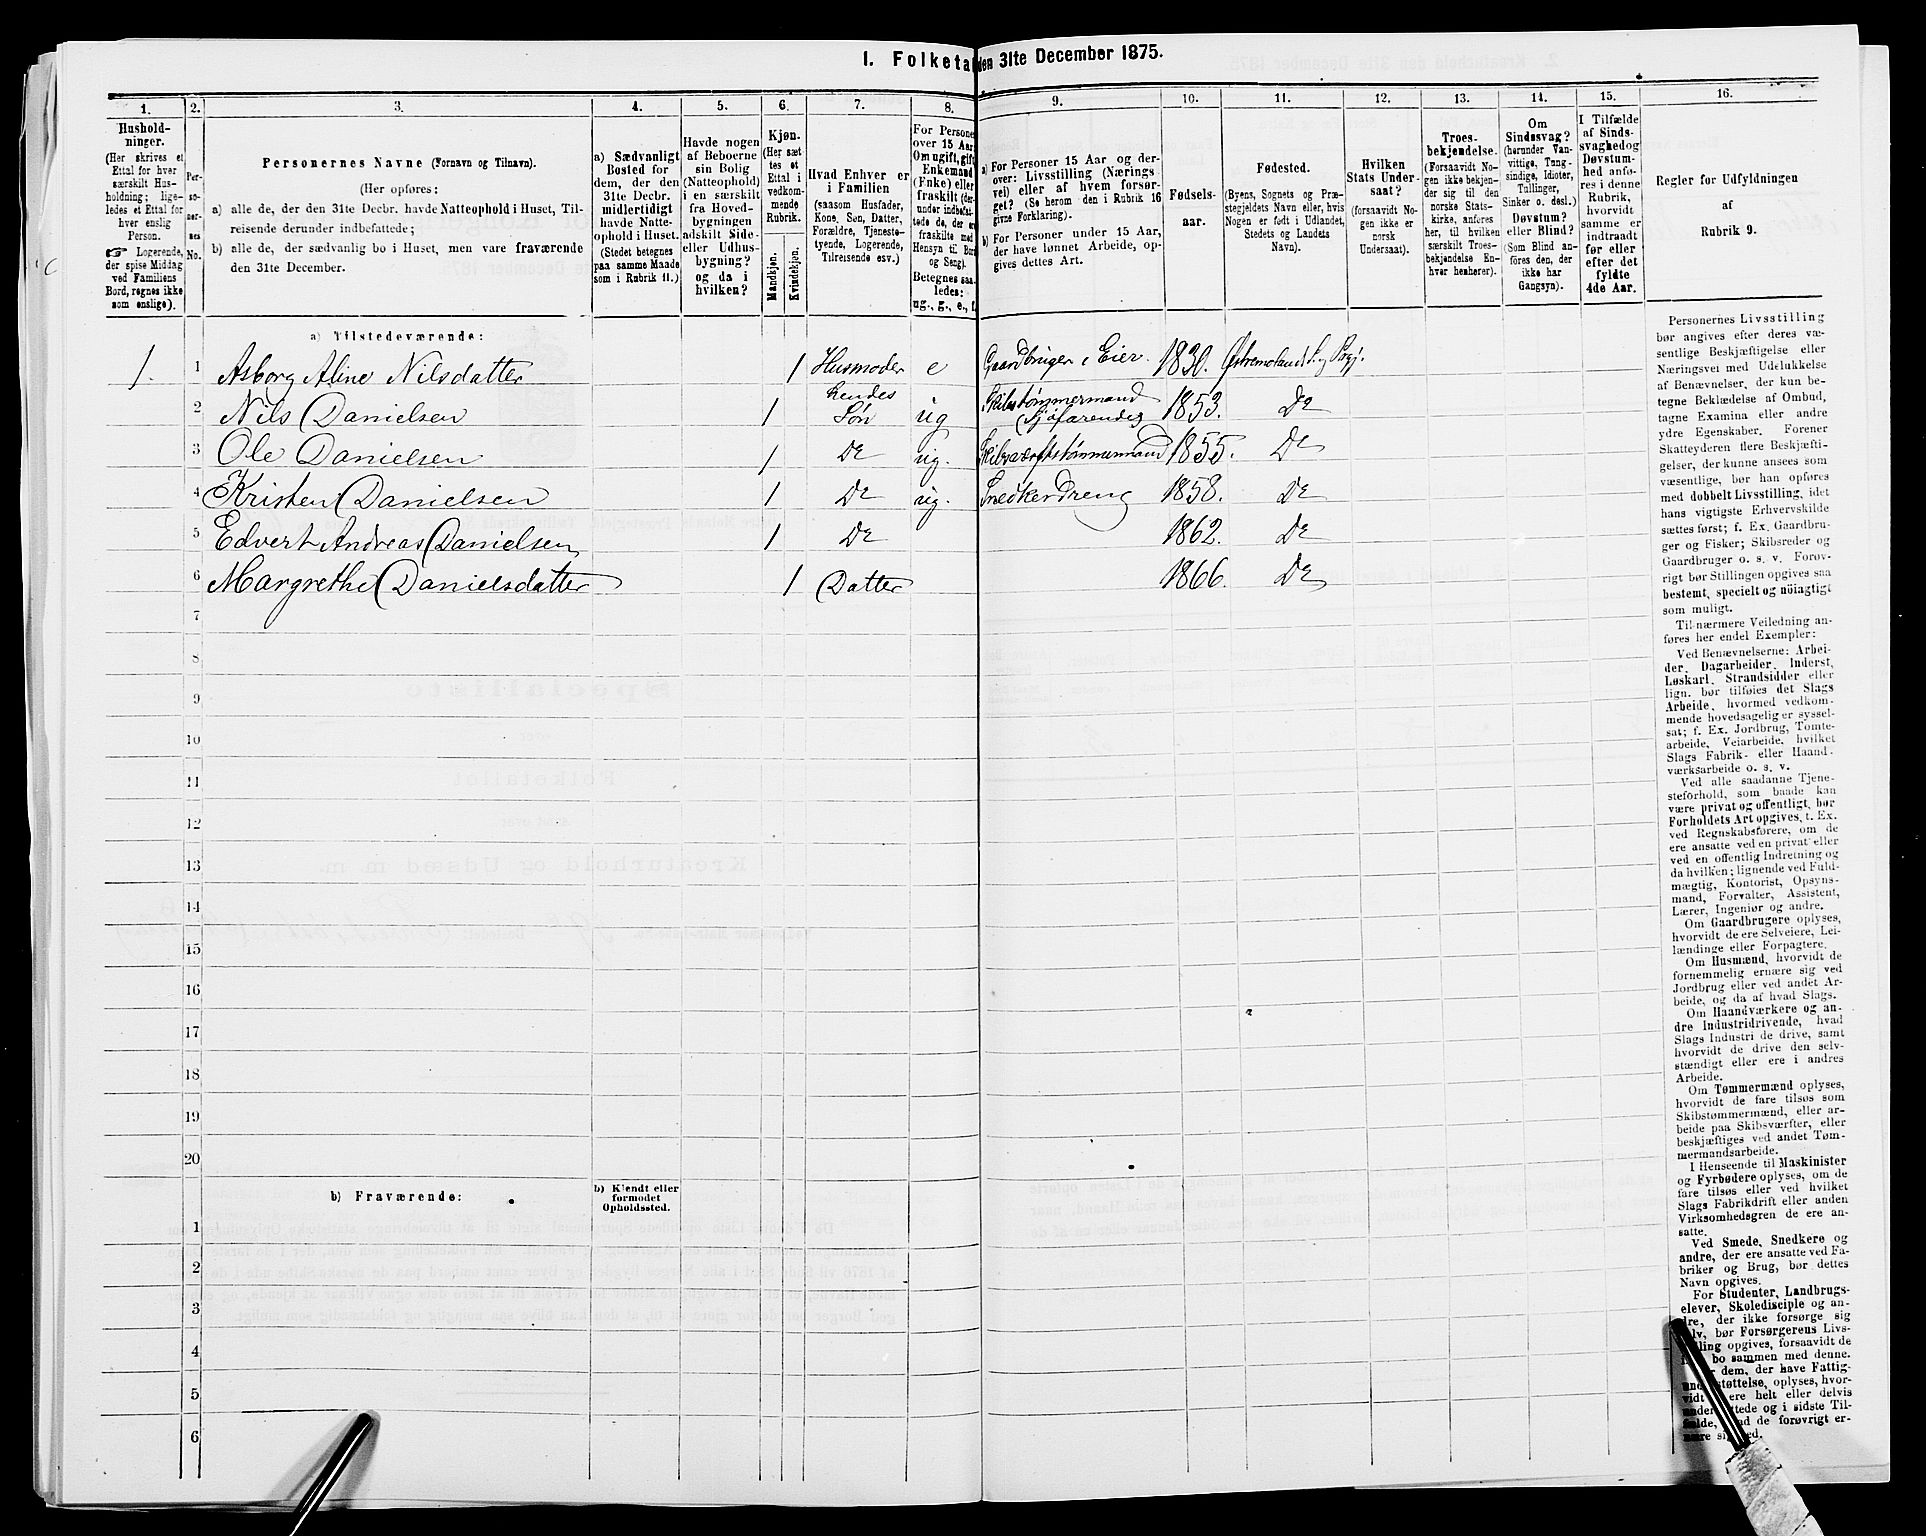 1. Folketal den 31te December 1875.
1. 2. 3. 4. 5. 6. 7. 8. 9. 10. 11. 12. 13. 14. 15. 16.
Hushold-
ninger.
(Her skrives et
Ettal for hver
særskilt Hus-
holdning; lige-
ledes et Ettal for
hver enslig
Person.
☞ Logerende,
der spise Middag
ved Familiens
Bord, regnes ikke
som enslige).
Per-
so-
ner-
nes
No.
Personernes Navne (Fornavn og Tilnavn).
(Her opføres:
a) alle de, der den 31te Decbr. havde Natteophold i Huset, Til-
reisende derunder indbefattede;
b) alle de, der sædvanlig bo i Huset, men vare fraværende
den 31te December.
a) Sædvanligt
Bosted for
dem, der den
31te Decbr.
midlertidigt
havde Natte-
ophold i Huset.
(Stedet betegnes
paa samme Maade
som i Rubrik 11.)
Havde nogen
af Beboerne
sin Bolig
(Natteophold)
i en særskilt
fra Hoved-
bygningen
adskilt Side-
eller Udhus-
bygning?
og da i
hvilken?
Kjøn.
(Her sæt-
tes et
Ettal i
vedkom-
mende
Rubrik.
Mandkjøn.
Kvindekjøn.
Hvad Enhver er
i Familien
(saasom Husfader,
Kone, Søn, Datter,
Forældre, Tjeneste-
tyende, Logerende,
Tilreisende esv.)
For Personer
over 15 Aar:
Om ugift, gift,
Enkemand
(Enke) eller
fraskilt (der-
under indbefat-
tede de, der ere
fraskilte med
Hensyn til Bord
og Seng).
Betegnes saa-
ledes:
ug., g., e., f.
a) For Personer 15 Aar og der-
over: Livsstilling (Nærings-
vei) eller af hvem forsør-
get? (Se herom den i Rubrik 16
givne Forklaring).
b) For Personer under 15 Aar,
der have lønnet Arbeide, op-
gives dettes Art.
Fødsels-
aar.
Fødested.
(Byens, Sognets og Præ-
stegjeldets Navn eller, hvis
Nogen er født i Udlandet,
Stedets og Landets
Navn).
Hvilken
Stats Under-
saat?
(forsaavidt No-
gen ikke er
norsk
Undersaat).
Troes-
bekjendelse.
(Forsaavidt No-
gen ikke bekjen-
der sig til den
norske Stats-
kirke, anføres
her, til hvilken
særskilt Troes-
bekjendelse En-
hver henhører).
Om
Sindssvag?
(herunder Van-
vittige, Tung-
sindige, Idioter,
Tullinger,
Sinker o. desl.)
Døvstum?
eller Blind?
(Som Blind an-
føres den, der
ikke har
Gangsyn).
I Tilfælde
af Sinds-
svaghed og
Døvstum-
hed anfø-
res i denne
Rubrik,
hvorvidt
samme er
indtraadt
før eller
efter det
fyldte
4de Aar.
Regler for Udfyldningen
af
Rubrik 9.
a) Tilstedeværende:
1. 1 Asborg Aline Nilsdatter 1 Husmoder e Gaardbruger, Eier. 1830.
2 Nils Danielsen 1 hendes Søn ug Skibstømmermand (sjøfarende) 1853. Do
3 Ole Danielsen 1 Do ug. Skibsværftstømmermand 1855. Do
4 Kristen Danielsen 1 Do ug. Snedkerdreng 1858. Do
5 Edvert Andreas Danielsen 1 Do 1862. Do
6 Margrethe Danielsdatter 1 Datter 1866. Do
7
8
9
10
11
12
13
14
15
16
17
18
19
20
b) Fraværende:
b) Kjendt eller
formodet
Opholdssted.
1
2
3
4
5
6
Personernes Livsstilling
bør angives efter deres væ-
sentlige Beskjæftigelse eller
Næringsvei med Udelukkelse
af Benævnelser, der kun be-
tegne Beklædelse af Ombud,
tagne Examina eller andre
ydre Egenskaber. Forener
Skatteyderen flere Beskjæfti-
gelser, der kunne ansees som
væsentlige, bør han opføres
med dobbelt Livsstilling, idet
hans vigtigste Erhvervskilde
sættes først; f. Ex. Gaardbru-
ger og Fisker; Skibsreder og
Gaardbruger o. s. v. Forøv-
rigt bør Stillingen opgives saa
bestemt, specielt og nöiagtigt
som muligt.
Til nærmere Veiledning an-
føres her endel Exempler:
Ved Benævnelserne: Arbei-
der, Dagarbeider, Inderst,
Løskarl, Strandsidder eller
lign. bør tilføies det Slags
Arbeide, hvormed vedkom-
mende hovedsagelig er syssel-
sat; f. Ex. Jordbrug, Tomte-
arbeide, Veiarbeide, hvilket
Slags Fabrik- eller Haand-
værksarbeide o. s. v.
Ved alle saadanne Tjene-
steforhold, som baade kan
være privat og offentligt, bør
Forholdets Art opgives, t. Ex.
ved Regnskabsførere, om de
ere ansatte ved en privat eller
ved en offentlig Indretning og
da hvilken; lignende ved Fuld-
mægtig, Kontorist, Opsyns-
mand, Forvalter, Assistent,
Lærer, Ingeniør og andre.
Om Gaardbrugere oplyses,
hvorvidt de ere Selveiere, Lei-
lændinge eller Forpagtere.
Om Husmænd, hvorvidt de
fornemmelig ernære sig ved
Jordbrug eller ved andet Ar-
beide, og da af hvad Slags.
Om Haandværkere og an-
dre Industridrivende, hvad
Slags Industri de drive, samt
hvorvidt de drive den selv-
stændigt eller ere i andres
Arbeide.
Om Tømmermænd oplyses,
hvorvidt de fare tilsøs som
Skibstømmermænd, eller ar-
beide paa Skibsværfter, eller
beskjæftiges ved andet Tøm-
mermandsarbeide.
I Henseende til Maskinister
og Fyrbødere oplyses, om de
fare tilsøs eller ved hvilket
Slags Fabrikdrift eller anden
Virksomhedsgren de ere an-
satte.
Ved Smede, Snedkere og
andre, der ere ansatte ved Fa-
briker og Brug, bør dettes
Navn opgives.
For Studenter, Landbrugs-
elever, Skoledisciple og an-
dre, der ikke forsørge sig
opgives, forsaavidt de
bo sammen med denne.
dem, der have Fattig-
oplyses, hvor-
ere helt eller delvis
og i sidste Til-
de forøvrigt er-